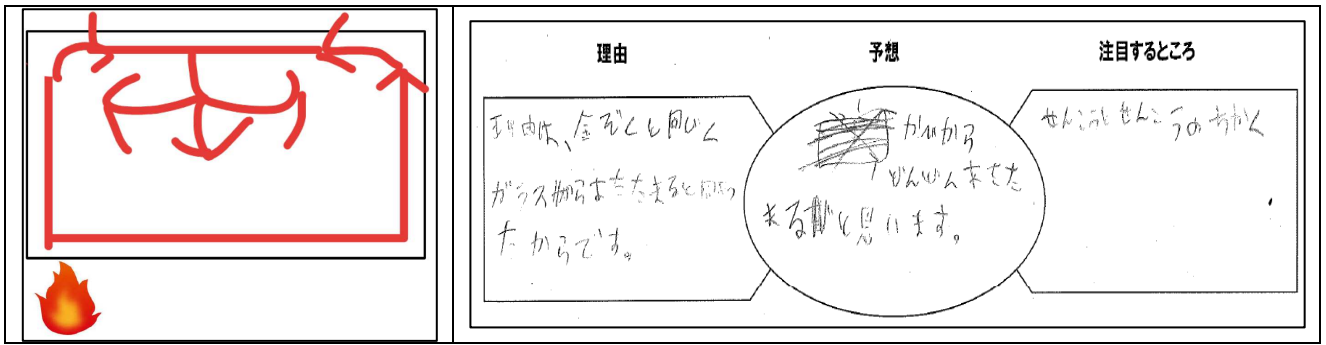 理由
予想
注目するところ
理由は、金ぞくと同じく
ガラスからあたたまると思っ
たからです。
かべから
どんどんあたた
まると思います。
せんこうとせんこうのちかく